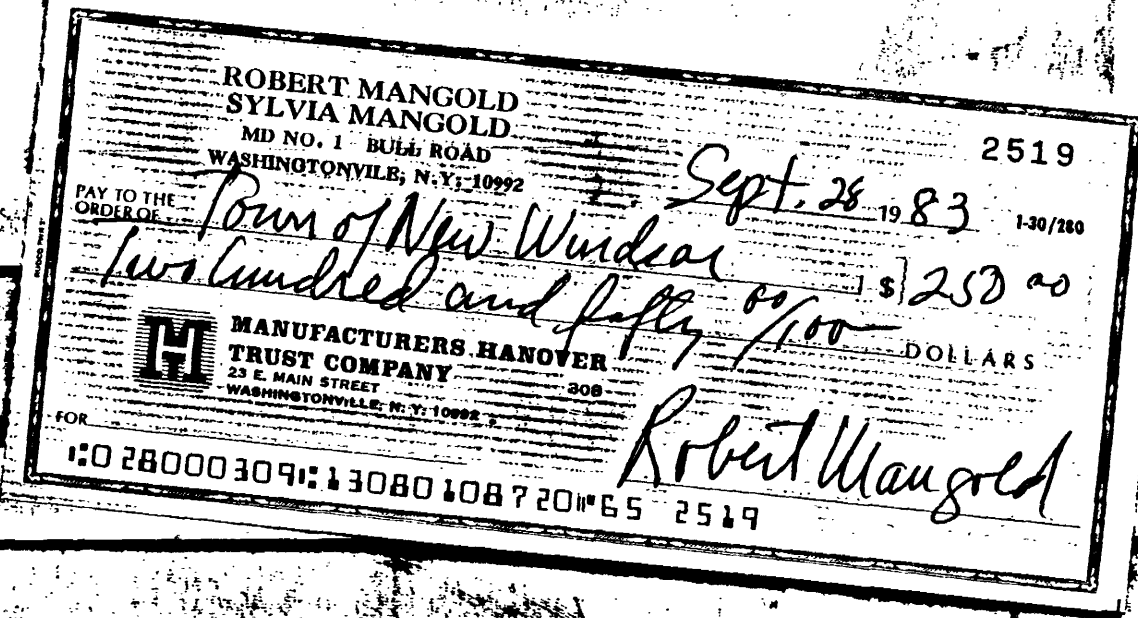 ROBERT MANGOLD
SYLVIA MANGOLD
MD NO. 1 BULL ROAD
WASHINGTONVILE, N.Y. 10992
2519
Sept. 28 19 83 1-30/280
PAY TO THE
ORDER OF Town of New Windsor $ 250 00
Two hundred and fifty 00/100 DOLLARS
MANUFACTURERS HANOVER
TRUST COMPANY
308
23 E. MAIN STREET
WASHINGTONVILLE, N. Y. 10992
FOR
Robert Mangold
⑆028000309⑆13080108720⑈65 2519